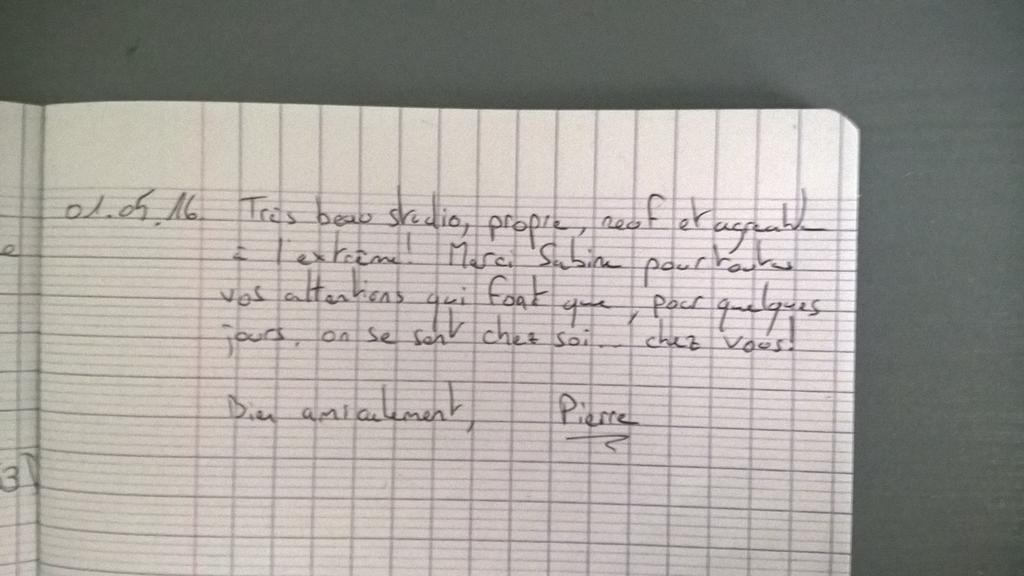 01.05.16 Très beau studio, propre, neuf et agréable
à l'extrême! Merci Sabine pour toutes
vos attentions qui font que, pour quelques
jours, on se sent chez soi... chez vous!
Bien amicalement, Pierre
e
3)